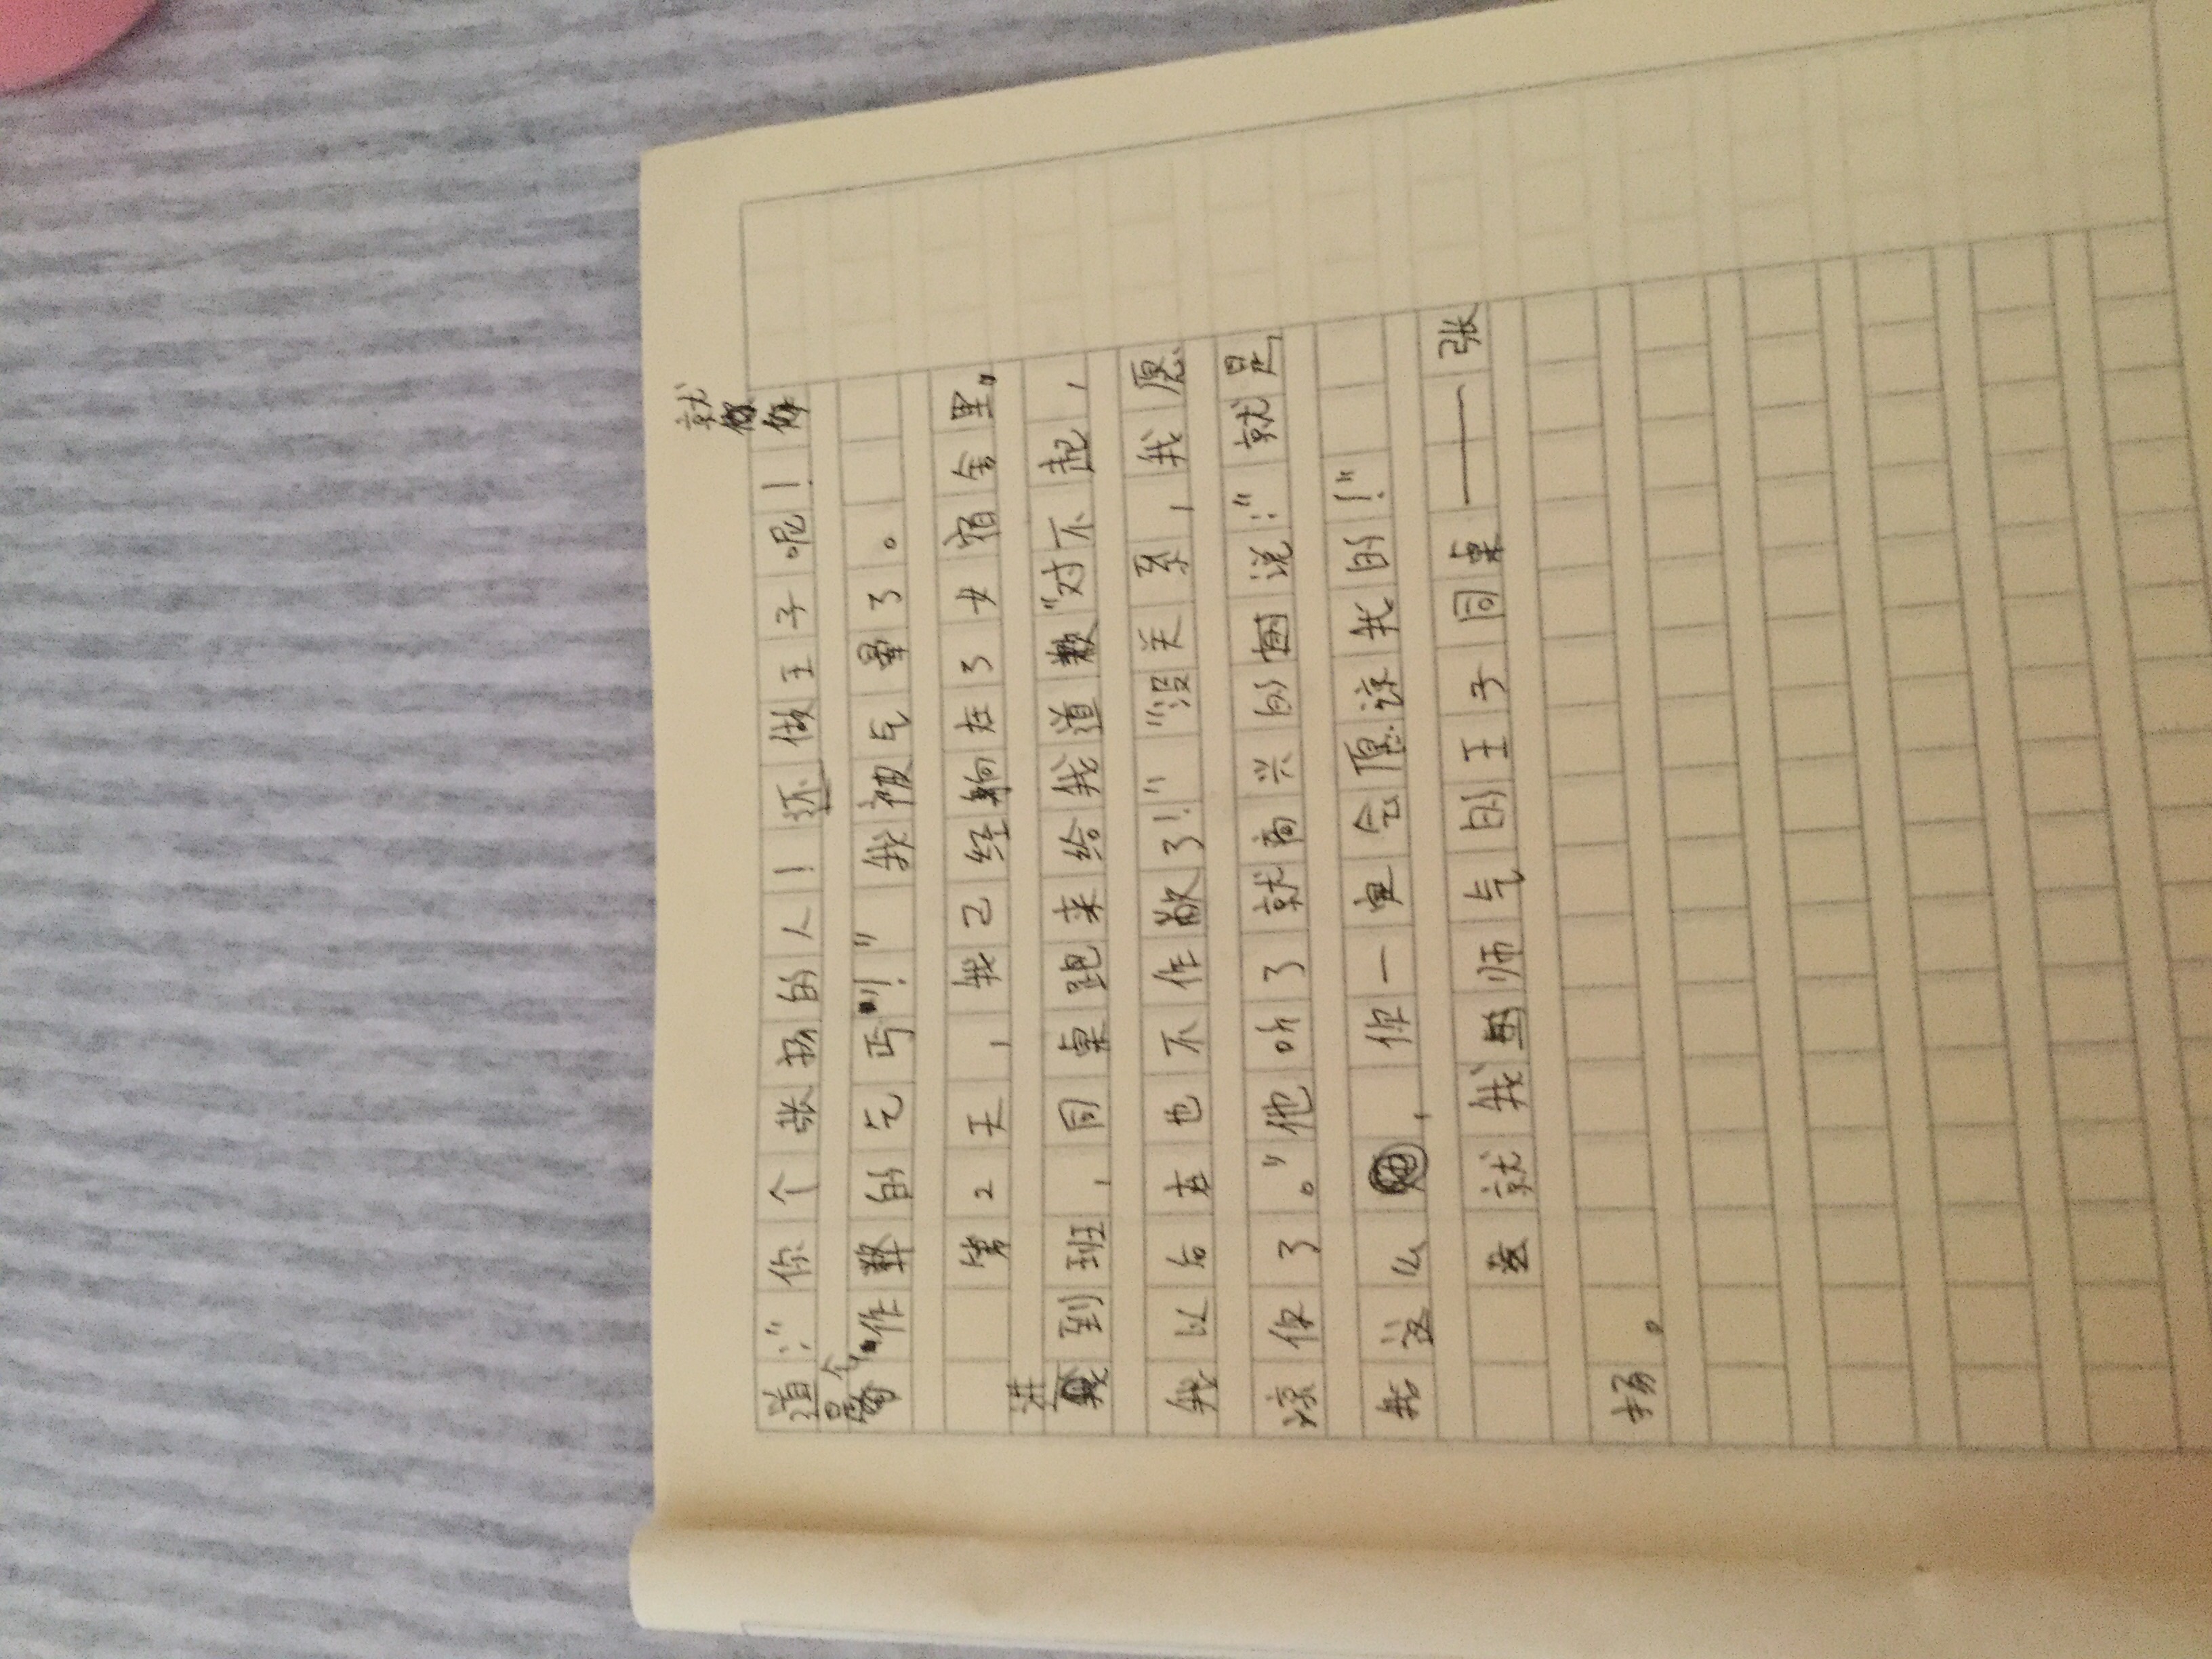 道:“你个张扬的人!还做王子呢!你就
是个作弊的乞丐!”我被气晕了。
第2天,我已经躺在了女宿舍里。
进到班,同桌跑来给我道歉“对不起,
我以后在也不作敝了!”“没关系,我愿
谅你了。”他听了就高兴的说:“就是
我这么,你一定会愿谅我的!”
这就我师气的王子同桌——张
扬。